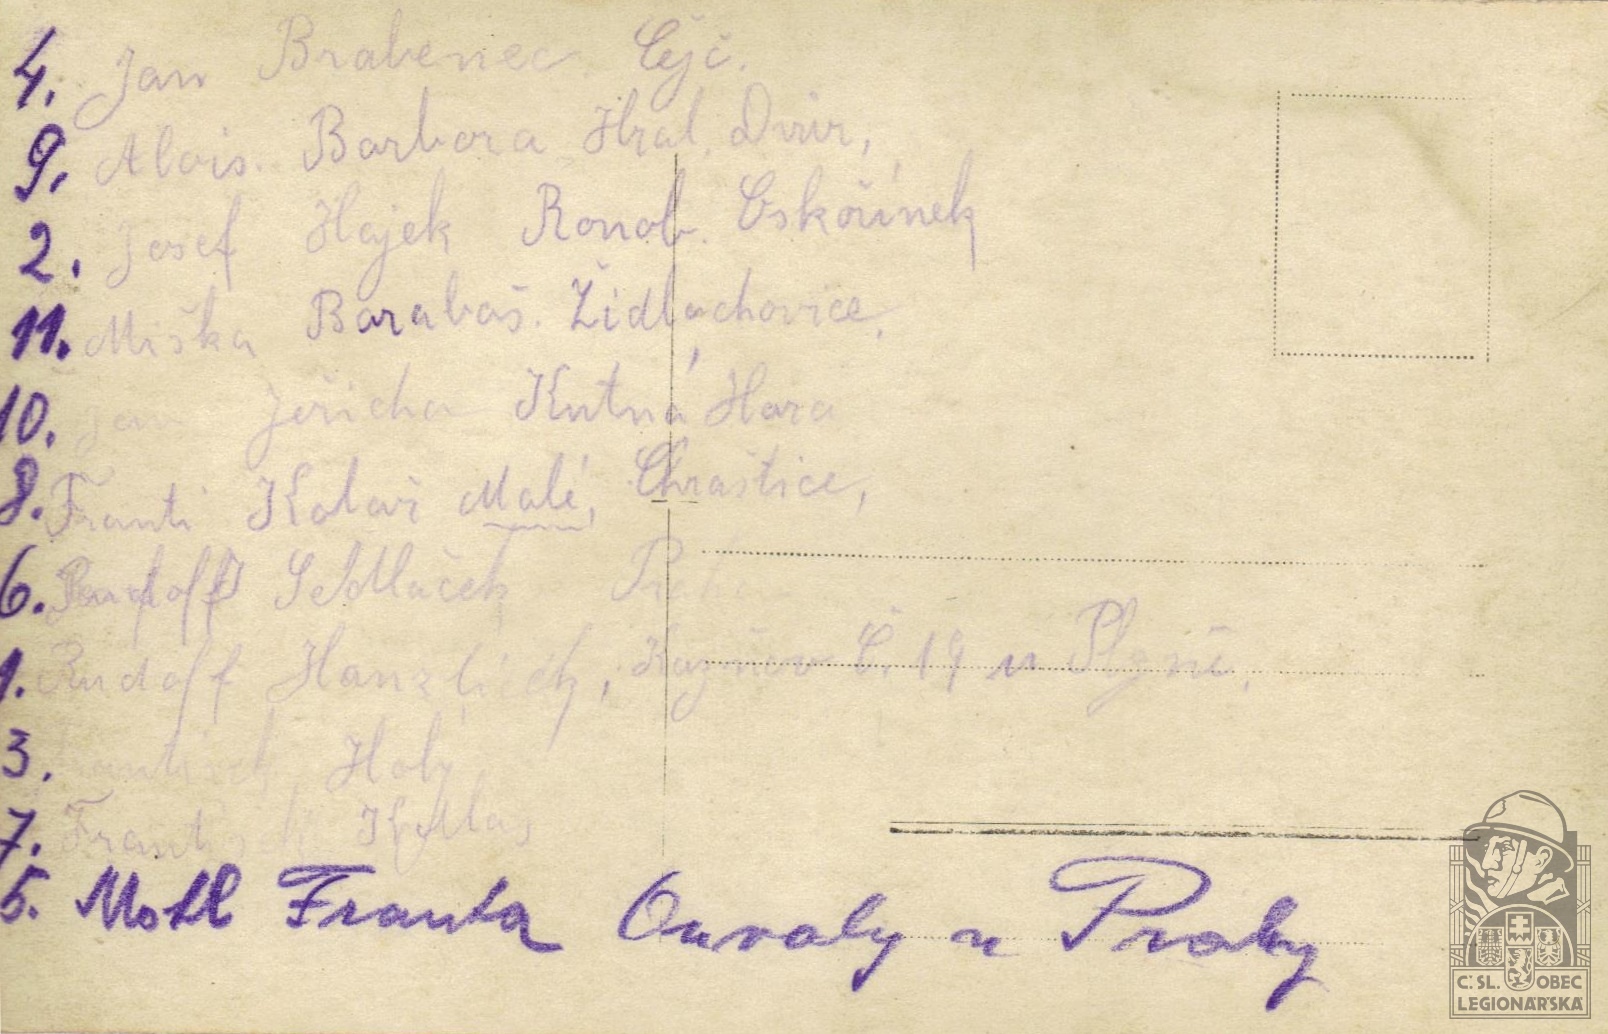 4. Jan Brabenec. Čejč.
9. Alois. Barbora Hral. Dvür,
2. Josef Hajek Ronob. Oskořínek
11. Miška Barabaš. Židlochovice,
10. Jan Jeřicha Kutná Hora
8. Franti Kolař Malé, Chraštice,
6. Rudolf Sedláček Praha
1. Rudolf Hanzlíček, Kazňov Č. 19 u Plzně,
3. František Holý
7. František
5. Motl Franta Ouvaly u Prahy
Č. SL. OBEC
LEGIONÁŘSKÁ